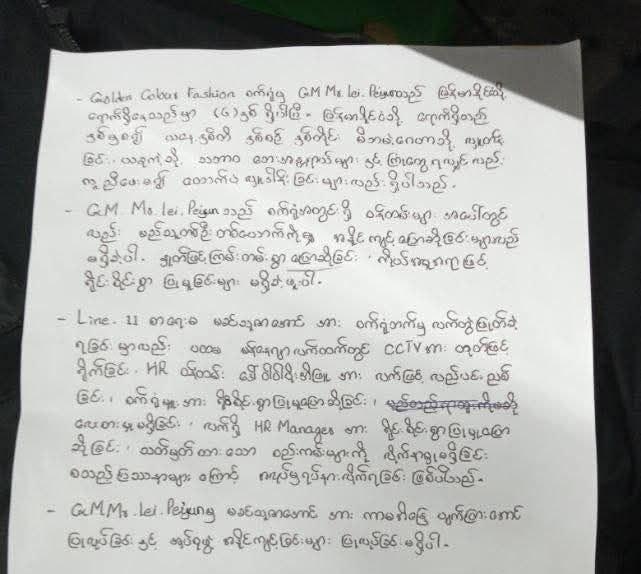 - Golden Colour Fashion စက်ရုံမှ GM Ms. Lei. Peiyunသည် မြန်မာနိုင်ငံသို့
ရောက်ရှိနေသည်မှာ (6)နှစ် ရှိပါပြီ။ မြန်မာနိုင်ငံသို့ ရောက်ရှိသည့်
နှစ်မှစ၍ ယနေ့နှစ်ထိ နှစ်စဉ် နှစ်တိုင်း မိဘမဲ့ဂေဟာသို့ လှူဒါန်း
ခြင်း၊ ယခုကဲ့သို့ သဘာဝ ဘေးအန္တရာယ်များ နှင့် ကြုံတွေ့ရလျှင်လည်း
ကူညီဖေးမ၍ ထောက်ပံ့ လှူဒါန်းခြင်းများလည်း ရှိပါသည်။
- GM. Ms. Lei. Peiyun သည် စက်ရုံအတွင်းရှိ ဝန်ထမ်းများ အပေါ်တွင်
လည်း မည်သူတစ်ဦးတစ်ယောက်ကိုမျှ အနိုင်ကျင့်ပြောဆိုခြင်းများလည်း
မရှိခဲ့ပါ။ နှုတ်ဖြင့်ကြမ်းတမ်းစွာ ပြောဆိုခြင်း၊ ကိုယ်အမူအရာဖြင့်
ရိုင်းစိုင်းစွာ ပြုမူခြင်းများ မရှိခဲ့ဖူးပါ။
- Line - 11 စာရေးမ မခင်သူဇာအောင် အား စက်ရုံဘက်မှ လက်တွဲဖြုတ်ခဲ့
ရခြင်းမှာလည်း ပထမ မိန်းလက်ထက်တွင် CCTV အား တုတ်ဖြင့်
ရိုက်ခြင်း၊ HR ဝန်ထမ်း ဒေါ် အား လက်ဖြင့် လည်ပင်းညှစ်
ခြင်း၊ စက်ရုံမှူးအား ရိုင်းစိုင်းစွာပြုမူပြောဆိုခြင်း၊
လေးစားမှုမရှိခြင်း၊ လက်ရှိ HR Manager အား ရိုင်းစိုင်းစွာပြုမူပြော
ဆိုခြင်း၊ သတ်မှတ်ထားသော စည်းကမ်းများကို လိုက်နာမှုမရှိခြင်း
စသည့်ပြဿနာများ ကြောင့် အလုပ်မှရပ်နားလိုက်ရခြင်း ဖြစ်ပါသည်။
- GM Ms. Lei. Peiyunမှ မခင်သူဇာအောင် အား ကာမဣန္ဒြေ ပျက်ပြားအောင်
ပြုလုပ်ခြင်း နှင့် အုပ်စုဖွဲ့ အနိုင်ကျင့်ခြင်းများ ပြုလုပ်ခြင်း မရှိပါ။